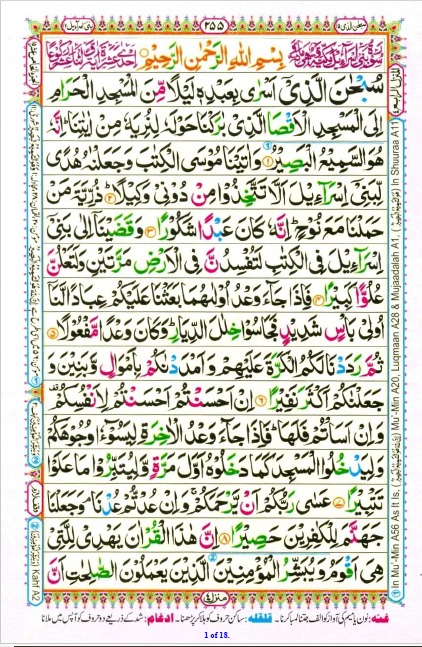 سبحن الذی ۱۵
۲۵۵
بنی اسرآءیل ۱۷
بِسْمِ اللّٰهِ الرَّحْمٰنِ الرَّحِیْمِ
سُبْحٰنَ الَّذِیْۤ اَسْرٰی بِعَبْدِهٖ لَیْلًا مِّنَ الْمَسْجِدِ الْحَرَامِ
اِلَی الْمَسْجِدِ الْاَقْصَا الَّذِیْ بٰرَكْنَا حَوْلَهٗ لِنُرِیَهٗ مِنْ اٰیٰتِنَا ؕ اِنَّهٗ
هُوَ السَّمِیْعُ الْبَصِیْرُ ۝۱ وَ اٰتَیْنَا مُوْسَی الْكِتٰبَ وَ جَعَلْنٰهُ هُدًی
لِّبَنِیْۤ اِسْرَآءِیْلَ اَلَّا تَتَّخِذُوْا مِنْ دُوْنِیْ وَكِیْلًا ۝۲ ذُرِّیَّةَ مَنْ
حَمَلْنَا مَعَ نُوْحٍ ؕ اِنَّهٗ كَانَ عَبْدًا شَكُوْرًا ۝۳ وَ قَضَیْنَاۤ اِلٰی بَنِیْۤ
اِسْرَآءِیْلَ فِی الْكِتٰبِ لَتُفْسِدُنَّ فِی الْاَرْضِ مَرَّتَیْنِ وَ لَتَعْلُنَّ
عُلُوًّا كَبِیْرًا ۝۴ فَاِذَا جَآءَ وَعْدُ اُوْلٰىهُمَا بَعَثْنَا عَلَیْكُمْ عِبَادًا لَّنَاۤ
اُولِیْ بَاْسٍ شَدِیْدٍ فَجَاسُوْا خِلٰلَ الدِّیَارِ ؕ وَ كَانَ وَعْدًا مَّفْعُوْلًا ۝۵
ثُمَّ رَدَدْنَا لَكُمُ الْكَرَّةَ عَلَیْهِمْ وَ اَمْدَدْنٰكُمْ بِاَمْوَالٍ وَّ بَنِیْنَ وَ
جَعَلْنٰكُمْ اَكْثَرَ نَفِیْرًا ۝۶ اِنْ اَحْسَنْتُمْ اَحْسَنْتُمْ لِاَنْفُسِكُمْ
وَ اِنْ اَسَاْتُمْ فَلَهَا ؕ فَاِذَا جَآءَ وَعْدُ الْاٰخِرَةِ لِیَسُوْٓءٗا وُجُوْهَكُمْ
وَ لِیَدْخُلُوا الْمَسْجِدَ كَمَا دَخَلُوْهُ اَوَّلَ مَرَّةٍ وَّ لِیُتَبِّرُوْا مَا عَلَوْا
تَتْبِیْرًا ۝۷ عَسٰی رَبُّكُمْ اَنْ یَّرْحَمَكُمْ ۚ وَ اِنْ عُدْتُّمْ عُدْنَا ۘ وَ جَعَلْنَا
جَهَنَّمَ لِلْكٰفِرِیْنَ حَصِیْرًا ۝۸ اِنَّ هٰذَا الْقُرْاٰنَ یَهْدِیْ لِلَّتِیْ
هِیَ اَقْوَمُ وَ یُبَشِّرُ الْمُؤْمِنِیْنَ الَّذِیْنَ یَعْمَلُوْنَ الصّٰلِحٰتِ اَنَّ
منزل ۴
غنه: نون یا میم کی آواز کو الف جتنا لمبا کرنا۔ قلقله: ساکن حروف کو ہلا کر پڑھنا۔ ادغام: شد کے ذریعے دو حروف کو آپس میں ملانا
1 of 18.
In Mu'-Min A56 As It Is, Mu'-Min A20, Luqmaan A28 & Mujaadalah A1, In Shuuraa A11
Kahf A2